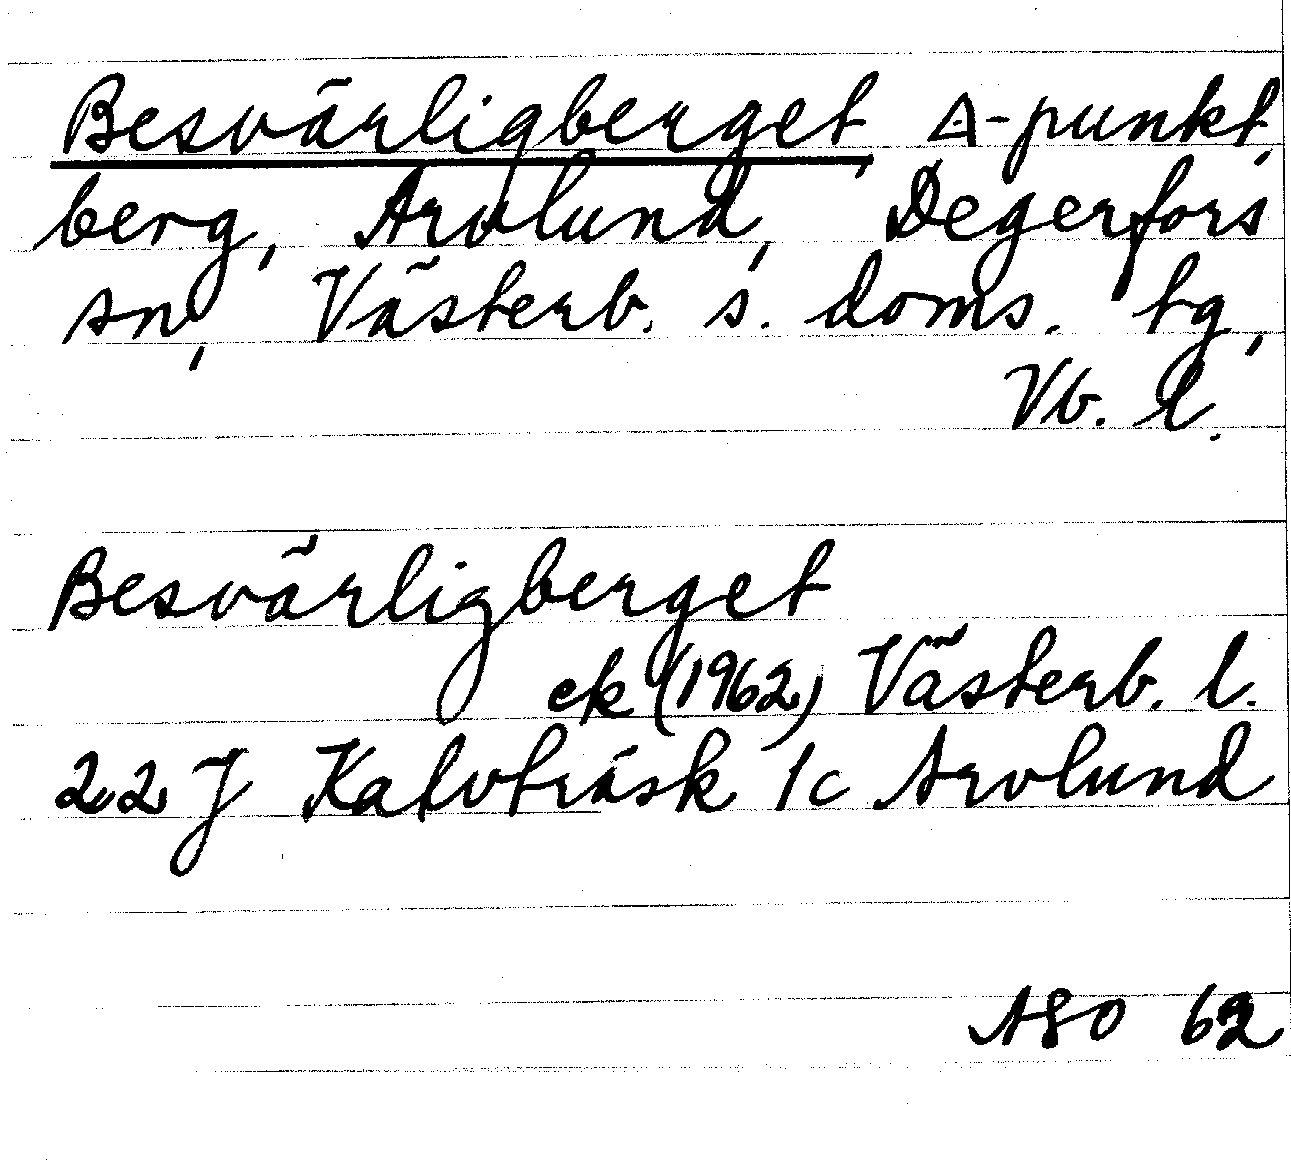 Besvärligberget, △-punkt,
berg, Arvlund, Degerfors
sn, Västerb. s. doms. tg,
Vb. l.
Besvärligberget
ek (1962) Västerb. l.
22 J Kalvträsk 1c Arvlund
ASO 62